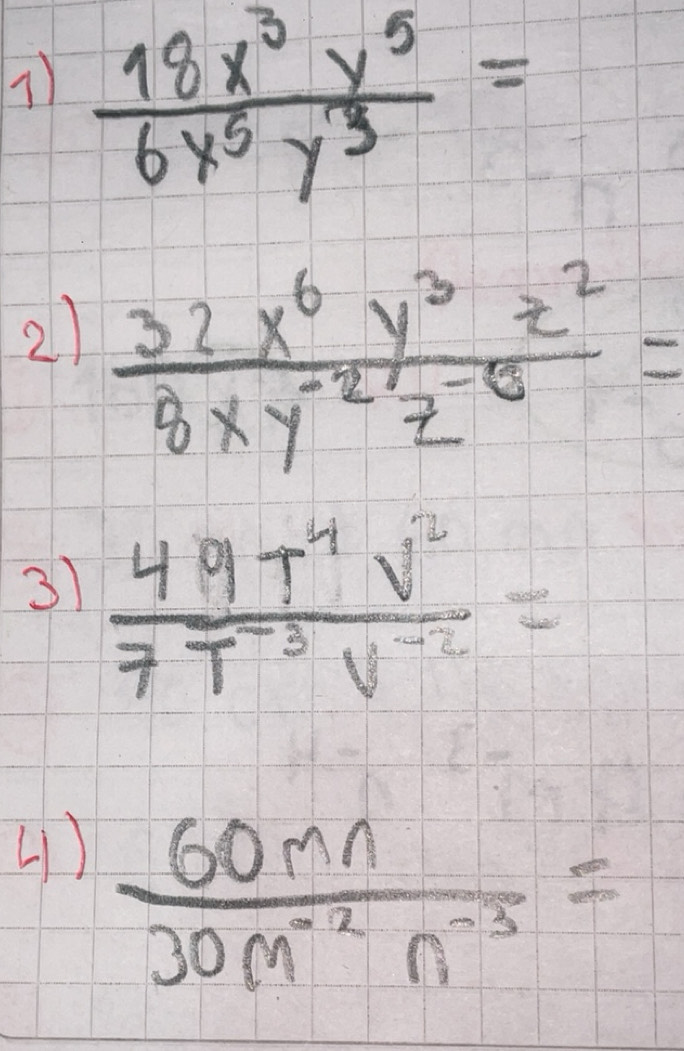 1) 18x³ y⁵ =
6x⁵ y³
2) 32 x⁶ y³ z² =
8xy⁻² z⁻⁶
3) 49T⁴ V² =
7T⁻³ V⁻²
4) 60mn =
30m⁻² n⁻³